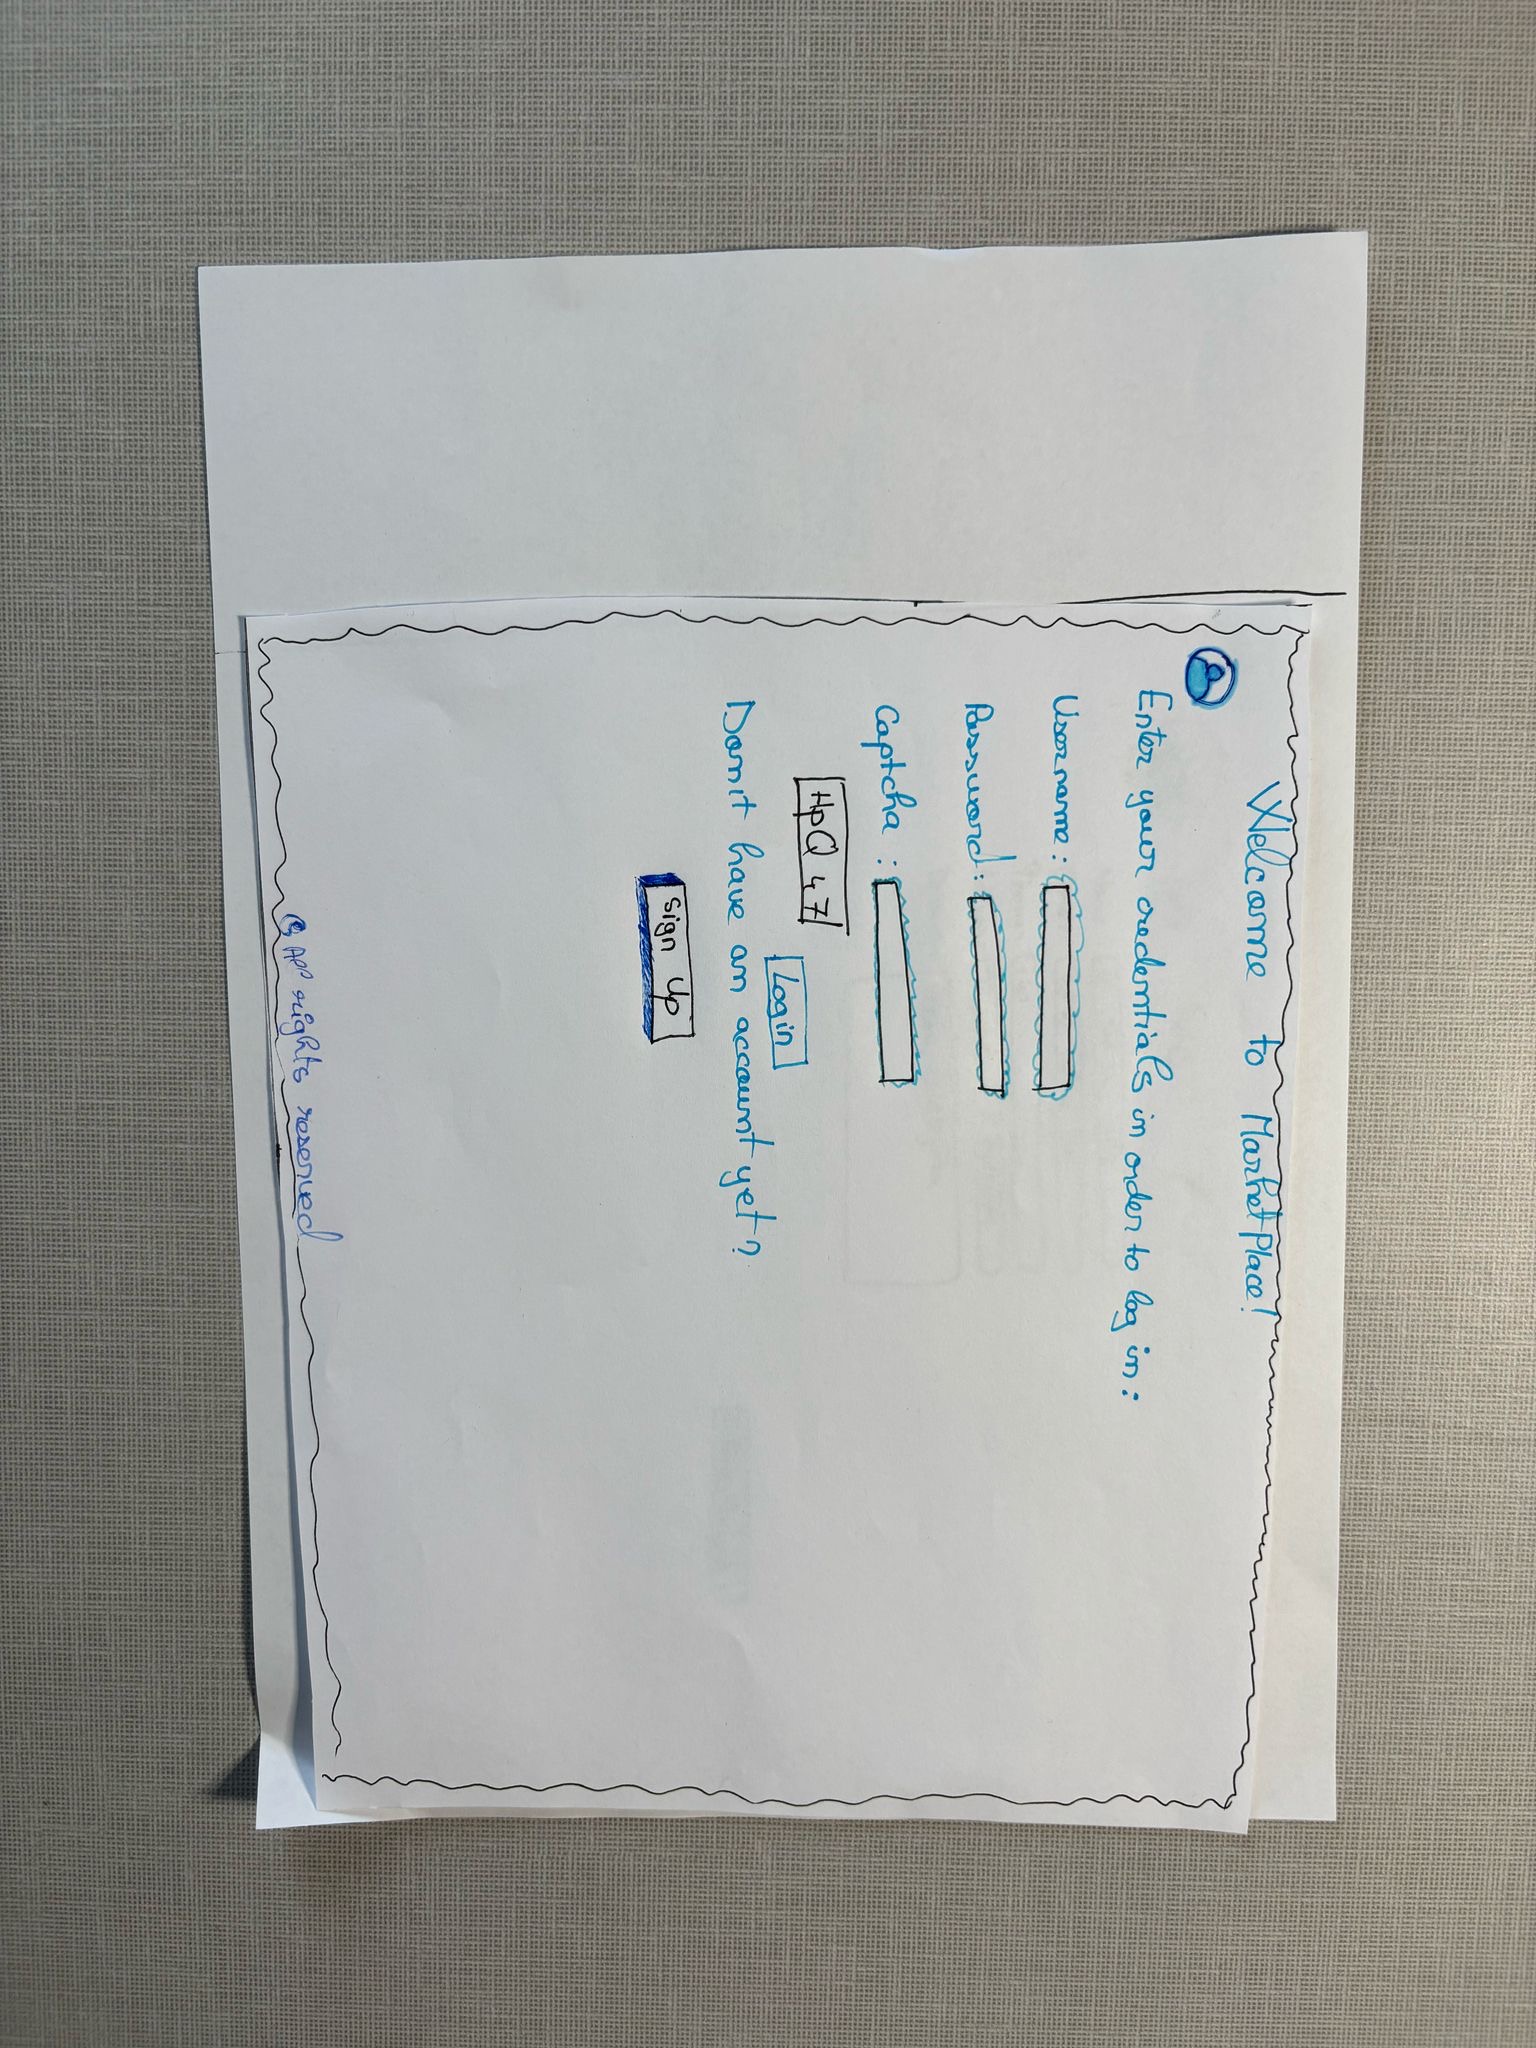 Welcome to MarketPlace!
Enter your credentials in order to log in:
Username:
Password:
Captcha:
HpQ 47
Login
Don't have an account yet?
Sign Up
© App rights reserved